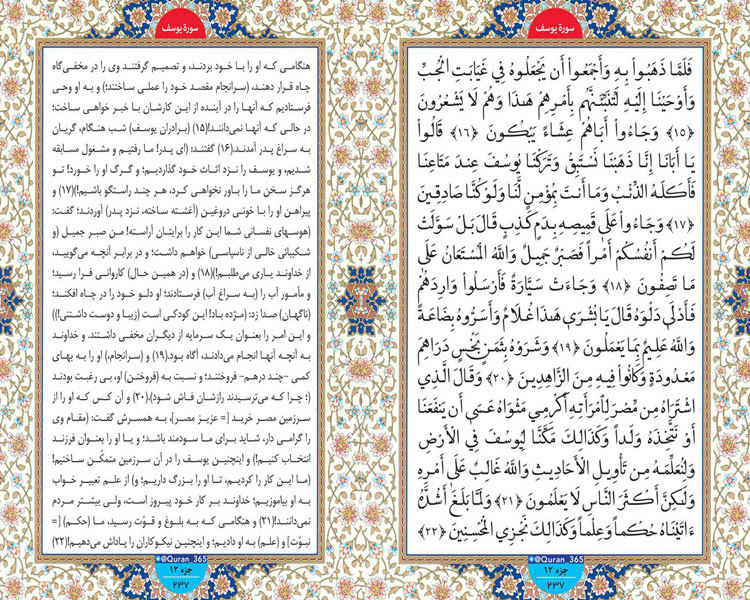 سورة يوسف
فَلَمَّا ذَهَبُواْ بِهِ وَأَجْمَعُواْ أَن يَجْعَلُوهُ فِي غَيَابَتِ الْجُبِّ
وَأَوْحَيْنَا إِلَيْهِ لَتُنَبِّئَنَّهُم بِأَمْرِهِمْ هَذَا وَهُمْ لَا يَشْعُرُونَ
﴿١٥﴾ وَجَاءُواْ أَبَاهُمْ عِشَاءً يَبْكُونَ ﴿١٦﴾ قَالُواْ
يَا أَبَانَا إِنَّا ذَهَبْنَا نَسْتَبِقُ وَتَرَكْنَا يُوسُفَ عِندَ مَتَاعِنَا
فَأَكَلَهُ الذِّئْبُ وَمَا أَنتَ بِمُؤْمِنٍ لَّنَا وَلَوْ كُنَّا صَادِقِينَ
﴿١٧﴾ وَجَاءُواْ عَلَى قَمِيصِهِ بِدَمٍ كَذِبٍ قَالَ بَلْ سَوَّلَتْ
لَكُمْ أَنفُسُكُمْ أَمْراً فَصَبْرٌ جَمِيلٌ وَاللَّهُ الْمُسْتَعَانُ عَلَى
مَا تَصِفُونَ ﴿١٨﴾ وَجَاءَتْ سَيَّارَةٌ فَأَرْسَلُواْ وَارِدَهُمْ
فَأَدْلَى دَلْوَهُ قَالَ يَا بُشْرَى هَذَا غُلَامٌ وَأَسَرُّوهُ بِضَاعَةً
وَاللَّهُ عَلِيمٌ بِمَا يَعْمَلُونَ ﴿١٩﴾ وَشَرَوْهُ بِثَمَنٍ بَخْسٍ دَرَاهِمَ
مَعْدُودَةٍ وَكَانُواْ فِيهِ مِنَ الزَّاهِدِينَ ﴿٢٠﴾ وَقَالَ الَّذِي
اشْتَرَاهُ مِن مِّصْرَ لِامْرَأَتِهِ أَكْرِمِي مَثْوَاهُ عَسَى أَن يَنفَعَنَا
أَوْ نَتَّخِذَهُ وَلَداً وَكَذَلِكَ مَكَّنَّا لِيُوسُفَ فِي الْأَرْضِ
وَلِنُعَلِّمَهُ مِن تَأْوِيلِ الْأَحَادِيثِ وَاللَّهُ غَالِبٌ عَلَى أَمْرِهِ
وَلَكِنَّ أَكْثَرَ النَّاسِ لَا يَعْلَمُونَ ﴿٢١﴾ وَلَمَّا بَلَغَ أَشُدَّهُ
ءَاتَيْنَاهُ حُكْماً وَعِلْماً وَكَذَلِكَ نَجْزِي الْمُحْسِنِينَ ﴿٢٢﴾
@Quran_365
جزء ١٢
٢٣٧
سورة يوسف
هنگامی که او را با خود بردند، و تصمیم گرفتند وی را در مخفی‌گاه
چاه قرار دهند، (سرانجام مقصد خود را عملی ساختند؛) و به او وحی
فرستادیم که آنها را در آینده از این کارشان با خبر خواهی ساخت؛
در حالی که آنها نمی‌دانند!(۱۵) (برادران یوسف) شب هنگام، گریان
به سراغ پدر آمدند.(۱۶) گفتند: (ای پدر! ما رفتیم و مشغول مسابقه
شدیم، و یوسف را نزد اثاث خود گذاردیم؛ و گرگ او را خورد! تو
هرگز سخن ما را باور نخواهی کرد، هر چند راستگو باشیم!)(۱۷) و
پیراهن او را با خونی دروغین (آغشته ساخته، نزد پدر) آوردند؛ گفت:
(هوسهای نفسانی شما این کار را برایتان آراسته! من صبر جمیل (و
شکیبائی خالی از ناسپاسی) خواهم داشت؛ و در برابر آنچه می‌گویید،
از خداوند یاری می‌طلبم!)(۱۸) و (در همین حال) کاروانی فرا رسید؛
و مأمور آب را (به سراغ آب) فرستادند؛ او دلو خود را در چاه افکند؛
(ناگهان) صدا زد: (مژده باد! این کودکی است (زیبا و دوست داشتنی!))
و این امر را بعنوان یک سرمایه از دیگران مخفی داشتند. و خداوند
به آنچه آنها انجام می‌دادند، آگاه بود.(۱۹) و (سرانجام،) او را به بهای
کمی -چند درهم- فروختند؛ و نسبت به (فروختن) او، بی رغبت بودند
(؛ چرا که می‌ترسیدند رازشان فاش شود).(۲۰) و آن کس که او را از
سرزمین مصر خرید [= عزیز مصر]، به همسرش گفت: (مقام وی
را گرامی دار، شاید برای ما سودمند باشد؛ و یا او را بعنوان فرزند
انتخاب کنیم!) و اینچنین یوسف را در آن سرزمین متمکّن ساختیم!
(ما این کار را کردیم، تا او را بزرگ داریم؛ و) از علم تعبیر خواب
به او بیاموزیم؛ خداوند بر کار خود پیروز است، ولی بیشتر مردم
نمی‌دانند!(۲۱) و هنگامی که به بلوغ و قوّت رسید، ما (حکم) [=
نبوّت] و (علم) به او دادیم؛ و اینچنین نیکوکاران را پاداش می‌دهیم!(۲۲)
@Quran_365
جزء ١٢
٢٣٧